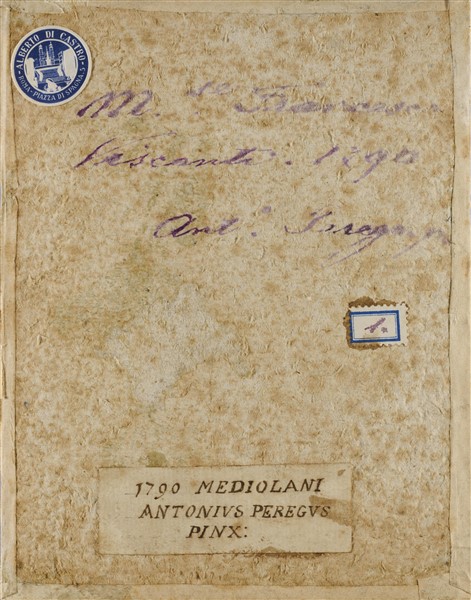 ALBERTO DI CASTRO
ROMA - PIAZZA DI SPAGNA 5
Visconti. 1790
Ant.º
1.
1790 MEDIOLANI
ANTONIVS PEREGVS
PINX: